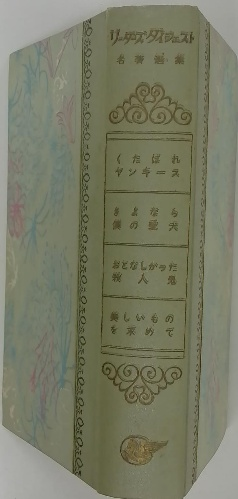 リーダーズ ダイジェスト
名著選集
くたばれ
ヤンキース
さよなら
僕の愛犬
おとなしかった
殺人鬼
美しいもの
を求めて